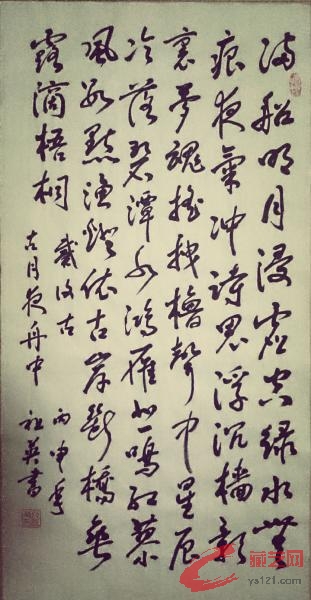 满船明月浸虚空绿水無
痕夜氣冲詩思浮沉樯影
裏夢魂摇拽橹聲中星辰
冷落碧潭水鴻雁悲鳴红蓼
風數點渔燈依古岸断橋垂
露滴梧桐 戴復古 丙申年
古月夜舟中 祖英書
藏艺网
ys121.com